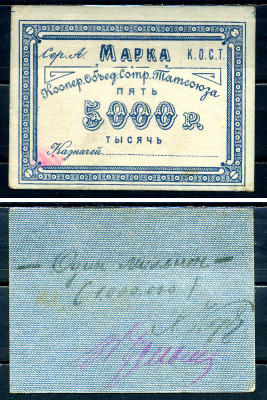 Сер. А. МАРКА К.О.С.Т.
Коопер. Объед. Сотр. Татсоюза
ПЯТЬ
5000 Р.
ТЫСЯЧЬ
Казначей
— Один миллион —
(1000.000)